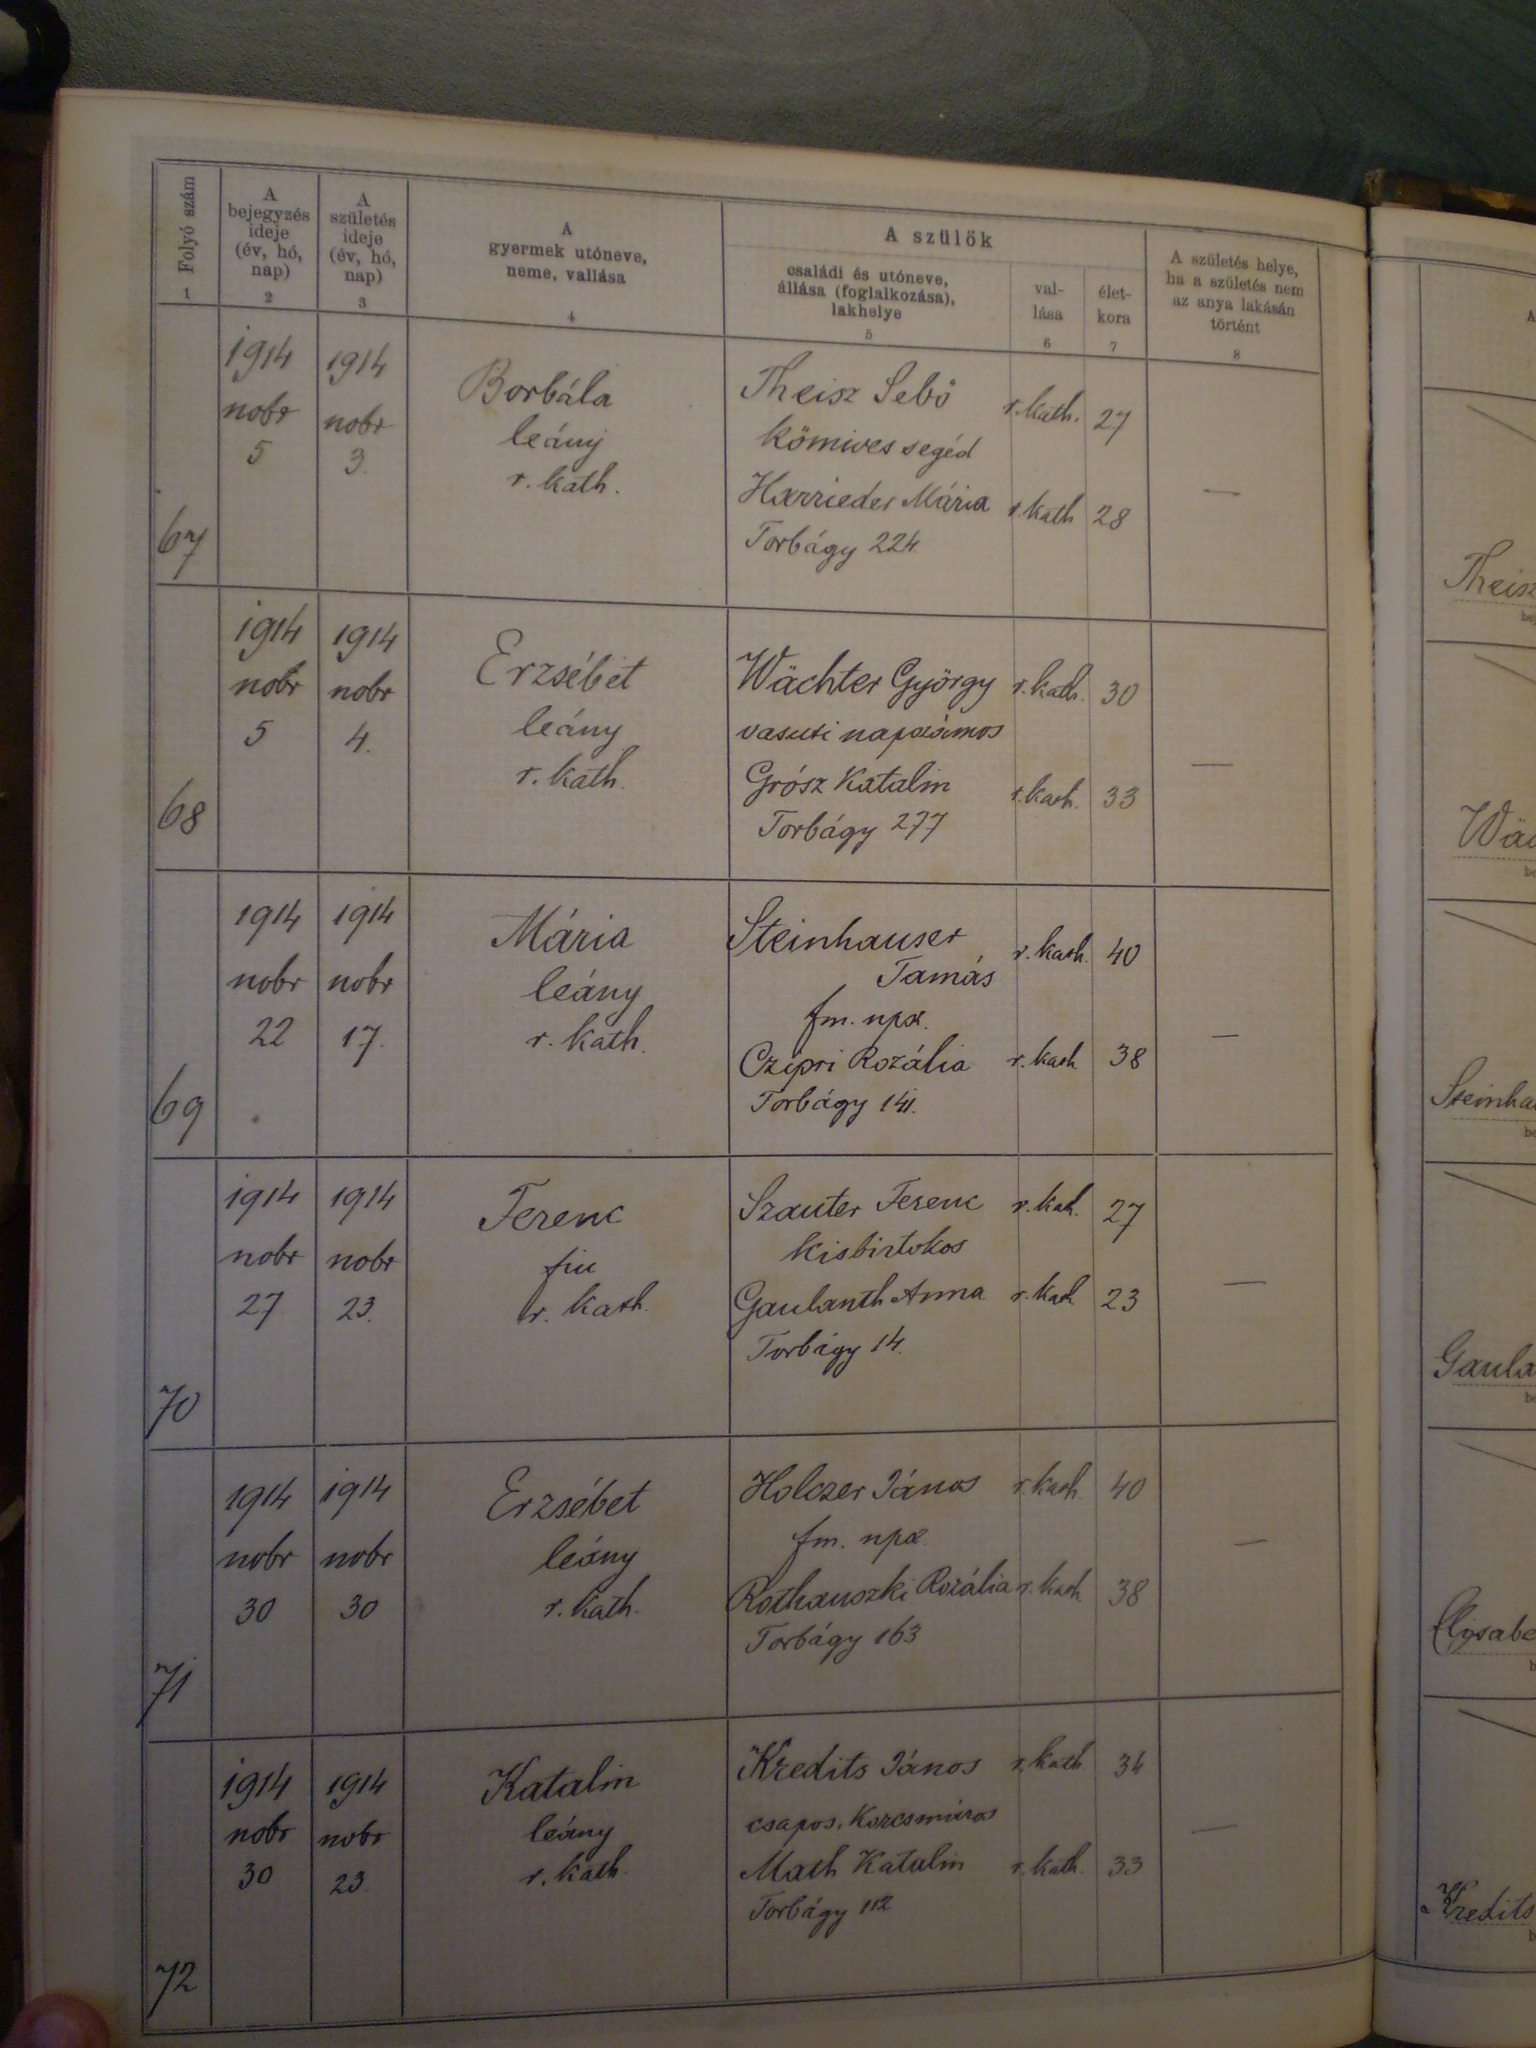 Folyó szám
A bejegyzés ideje (év, hó, nap)
A születés ideje (év, hó, nap)
A gyermek utóneve, neme, vallása
A szülők
családi és utóneve, állása (foglalkozása), lakhelye
vallása
életkora
A születés helye, ha a születés nem az anya lakásán történt
1 2 3 4 5 6 7 8
67
1914 nobr 5
1914 nobr 3.
Borbála
leány
r. kath.
Theisz Sebő r. kath. 27
kőmives segéd
Harrieder Mária r. kath 28
Torbágy 224.
—
68
1914 nobr 5
1914 nobr 4.
Erzsébet
leány
r. kath.
Wächter György r. kath. 30
vasuti napszámos
Grósz Katalin r. kath. 33
Torbágy 277
—
69
1914 nobr 22
1914 nobr 17.
Mária
leány
r. kath.
Steinhauser r. kath. 40
Tamás
fm. npsz.
Czipri Rozália r. kath 38
Torbágy 141.
—
70
1914 nobr 27
1914 nobr 23.
Ferenc
fiu
r. kath.
Szauter Ferenc r. kath. 27
kisbirtokos
Gaulanth Anna r. kath 23
Torbágy 14.
—
71
1914 nobr 30
1914 nobr 30
Erzsébet
leány
r. kath.
Holczer János r. kath. 40
fm. npsz.
Rothauszki Rozália r. kath 38
Torbágy 163
—
72
1914 nobr 30
1914 nobr 23.
Katalin
leány
r. kath.
Kredits János r. kath 34
csapos. Korcsmáros
Math Katalin r. kath. 33
Torbágy 112
—
Theisz
Wäc
Steinha
Gaula
Kredits